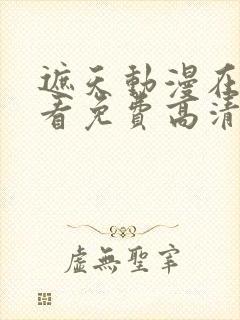 遮天動漫在
看免費高清
虛無聖宰